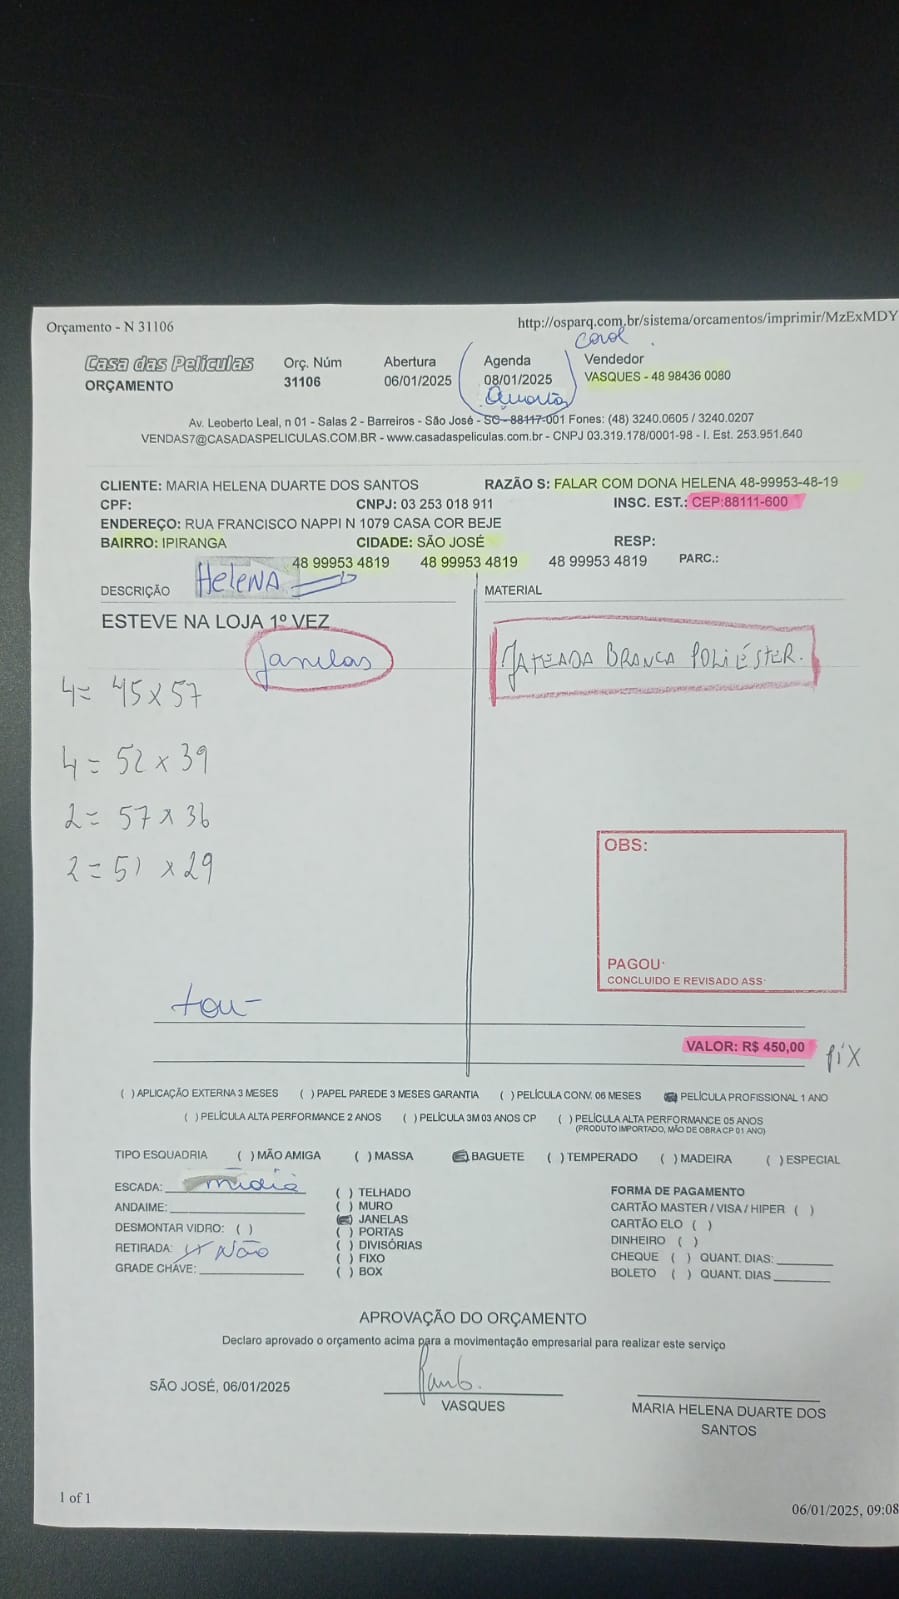 Orçamento - N 31106
http://osparq.com.br/sistema/orcamentos/imprimir/MzExMDY
Carol
Casa das Películas
ORÇAMENTO
Orç. Núm
31106
Abertura
06/01/2025
Agenda
08/01/2025
Quarta
Vendedor
VASQUES - 48 98436 0080
Av. Leoberto Leal, n 01 - Salas 2 - Barreiros - São José - SC - 88117-001 Fones: (48) 3240.0605 / 3240.0207
VENDAS7@CASADASPELICULAS.COM.BR - www.casadaspeliculas.com.br - CNPJ 03.319.178/0001-98 - I. Est. 253.951.640
CLIENTE: MARIA HELENA DUARTE DOS SANTOS RAZÃO S: FALAR COM DONA HELENA 48-99953-48-19
CPF: CNPJ: 03 253 018 911 INSC. EST.: CEP:88111-600
ENDEREÇO: RUA FRANCISCO NAPPI N 1079 CASA COR BEJE
BAIRRO: IPIRANGA CIDADE: SÃO JOSÉ RESP:
48 99953 4819 48 99953 4819 48 99953 4819 PARC.:
DESCRIÇÃO HELENA MATERIAL
ESTEVE NA LOJA 1º VEZ
Janelas
JATEADA BRANCA POLIÉSTER.
4= 45x57
4= 52x39
2= 57x36
2= 51x29
OBS:
PAGOU:
CONCLUIDO E REVISADO ASS:
VALOR: R$ 450,00
PIX
( ) APLICAÇÃO EXTERNA 3 MESES ( ) PAPEL PAREDE 3 MESES GARANTIA ( ) PELÍCULA CONV. 06 MESES PELÍCULA PROFISSIONAL 1 ANO
( ) PELÍCULA ALTA PERFORMANCE 2 ANOS ( ) PELÍCULA 3M 03 ANOS CP ( ) PELÍCULA ALTA PERFORMANCE 05 ANOS
(PRODUTO IMPORTADO, MÃO DE OBRA CP 01 ANO)
TIPO ESQUADRIA ( ) MÃO AMIGA ( ) MASSA BAGUETE ( ) TEMPERADO ( ) MADEIRA ( ) ESPECIAL
ESCADA: média
ANDAIME:
DESMONTAR VIDRO: ( )
RETIRADA: Não
GRADE CHAVE:
( ) TELHADO
( ) MURO
JANELAS
( ) PORTAS
( ) DIVISÓRIAS
( ) FIXO
( ) BOX
FORMA DE PAGAMENTO
CARTÃO MASTER / VISA / HIPER ( )
CARTÃO ELO ( )
DINHEIRO ( )
CHEQUE ( ) QUANT. DIAS:
BOLETO ( ) QUANT. DIAS
APROVAÇÃO DO ORÇAMENTO
Declaro aprovado o orçamento acima para a movimentação empresarial para realizar este serviço
SÃO JOSÉ, 06/01/2025
VASQUES
MARIA HELENA DUARTE DOS
SANTOS
1 of 1
06/01/2025, 09:08